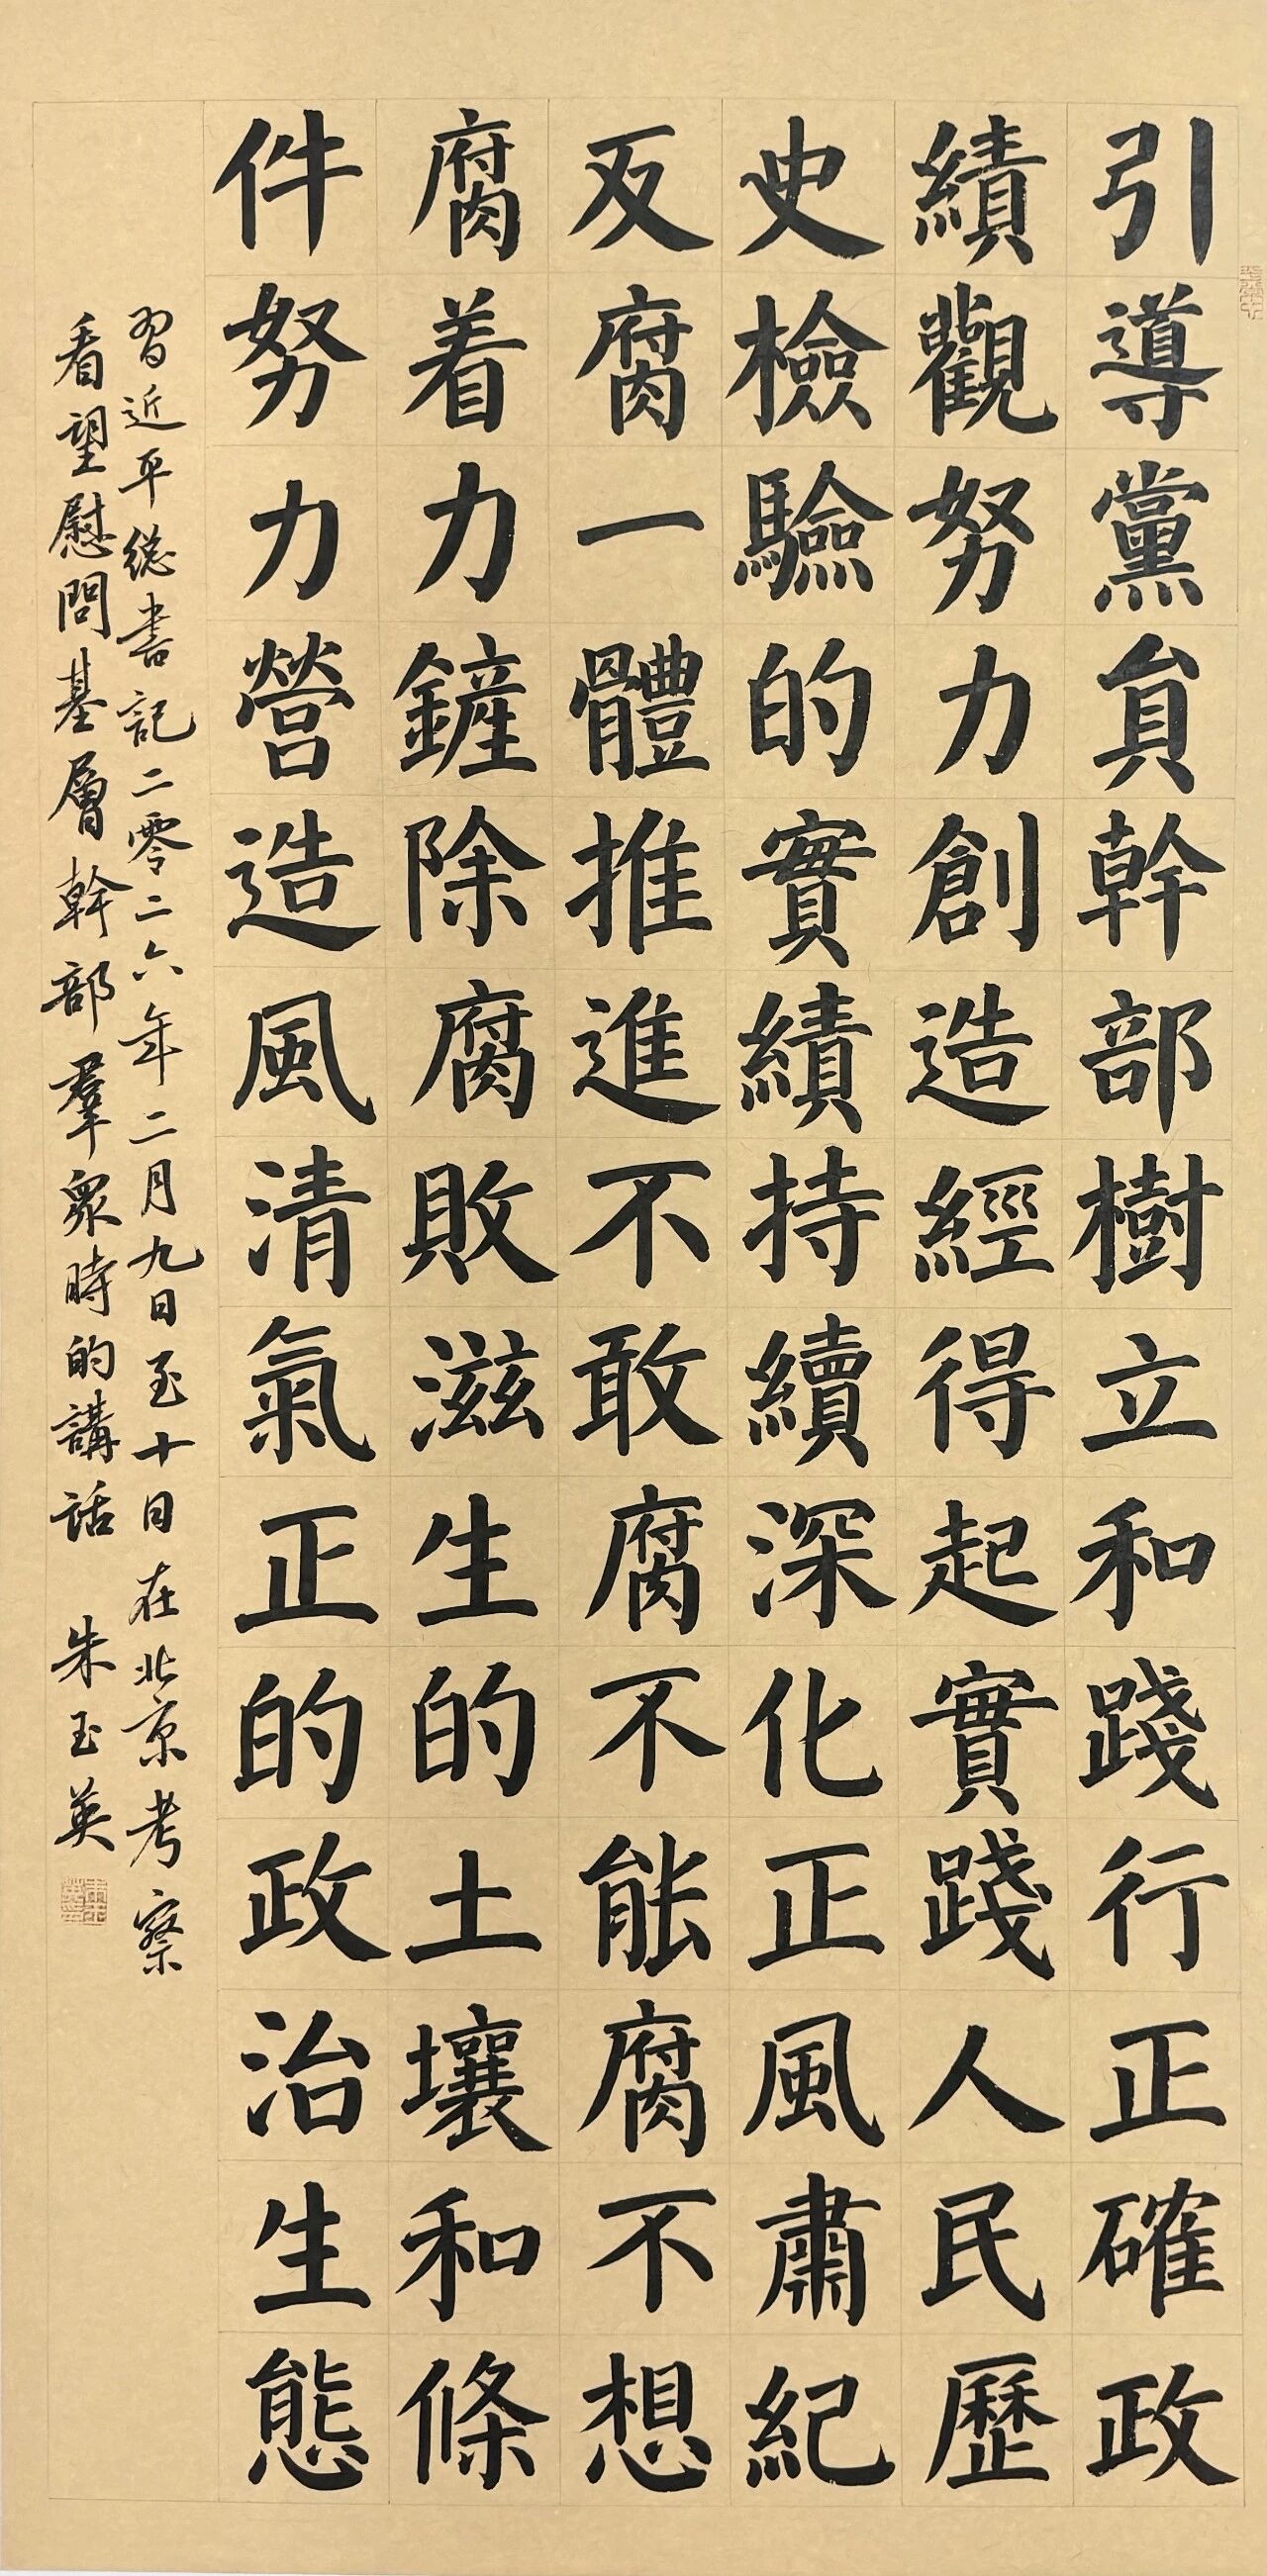 引導黨負幹部樹立和踐行正確政
績觀努力創造經得起實踐人民歷
史檢驗的實績持續深化正風肅紀
反腐一體推進不敢腐不能腐不想
腐着力鏟除腐敗滋生的土壤和條
件努力營造風清氣正的政治生態
習近平總書記二零二六年二月九日至十日在北京考察
看望慰問基層幹部羣眾時的講話 朱玉英